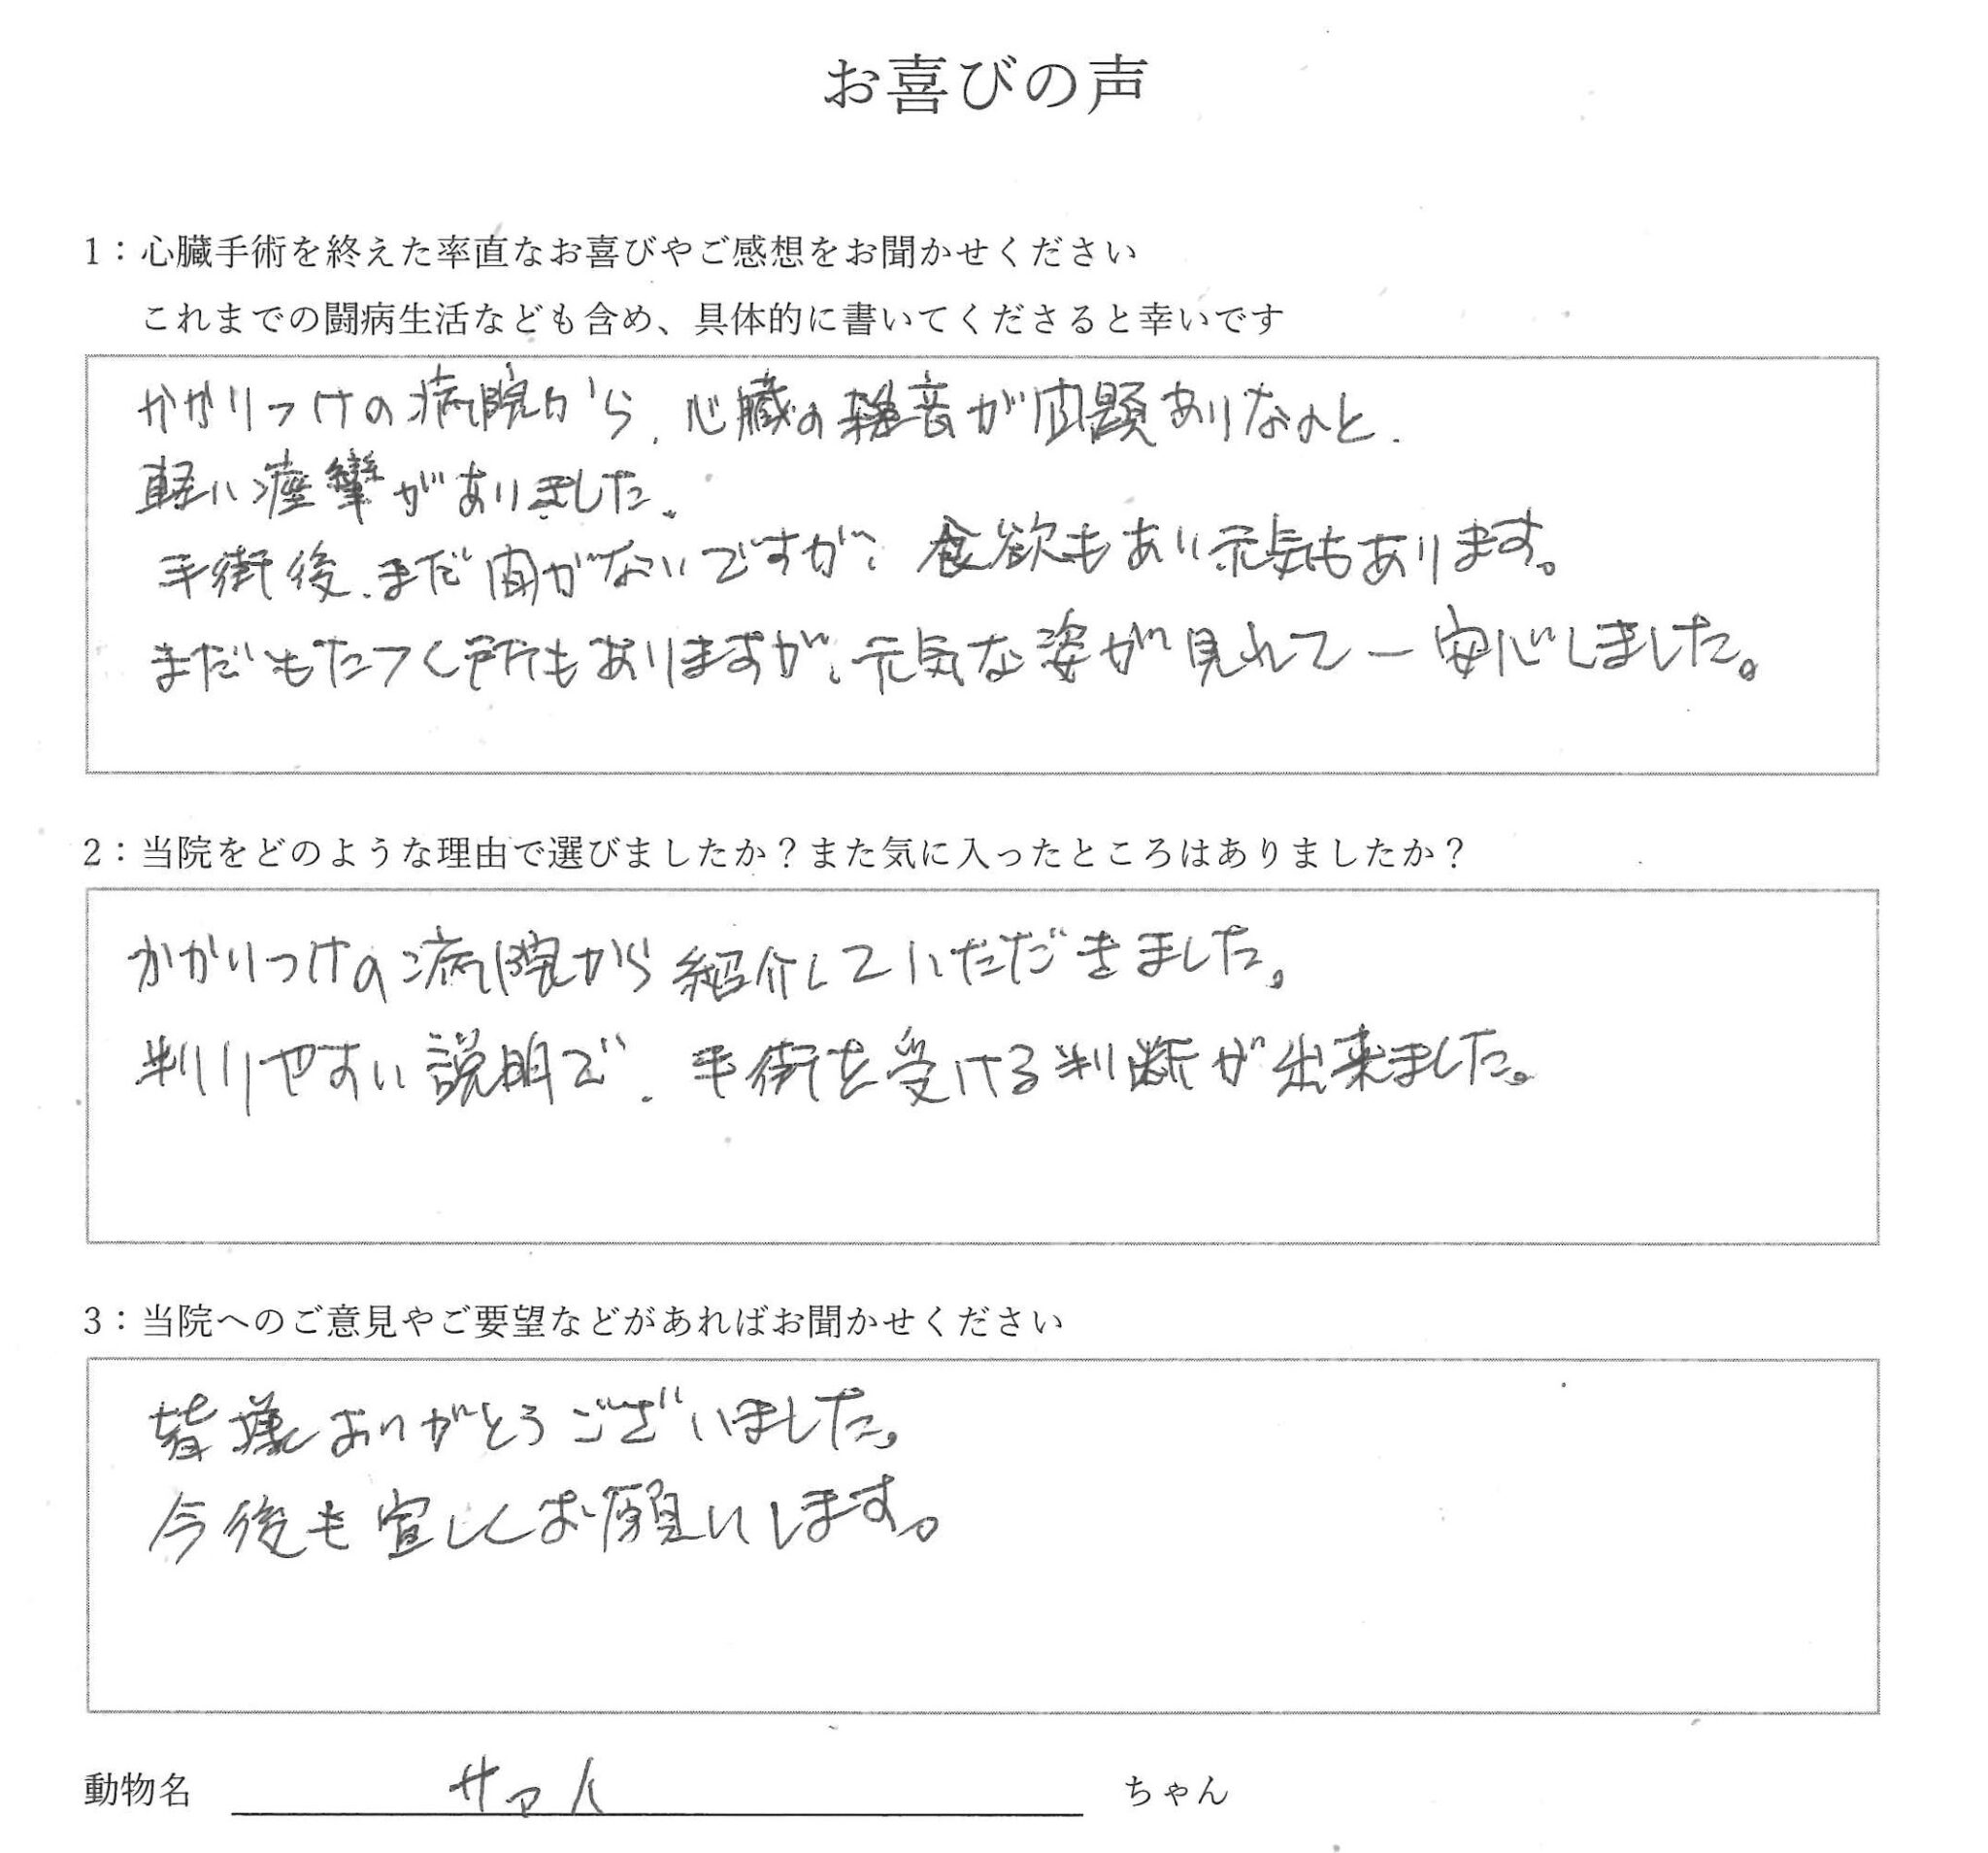 お喜びの声
1：心臓手術を終えた率直なお喜びやご感想をお聞かせください
これまでの闘病生活なども含め、具体的に書いてくださると幸いです
かかりつけの病院から、心臓の雑音が問題ありなのと、
軽い痙攣がありました。
手術後、まだ間がないですが、食欲もあり元気もあります。
まだもたつく所もありますが、元気な姿が見れて一安心しました。
2：当院をどのような理由で選びましたか？また気に入ったところはありましたか？
かかりつけの病院から紹介していただきました。
判りやすい説明で、手術を受ける判断が出来ました。
3：当院へのご意見やご要望などがあればお聞かせください
皆様ありがとうございました。
今後も宜しくお願いします。
動物名 ちゃん